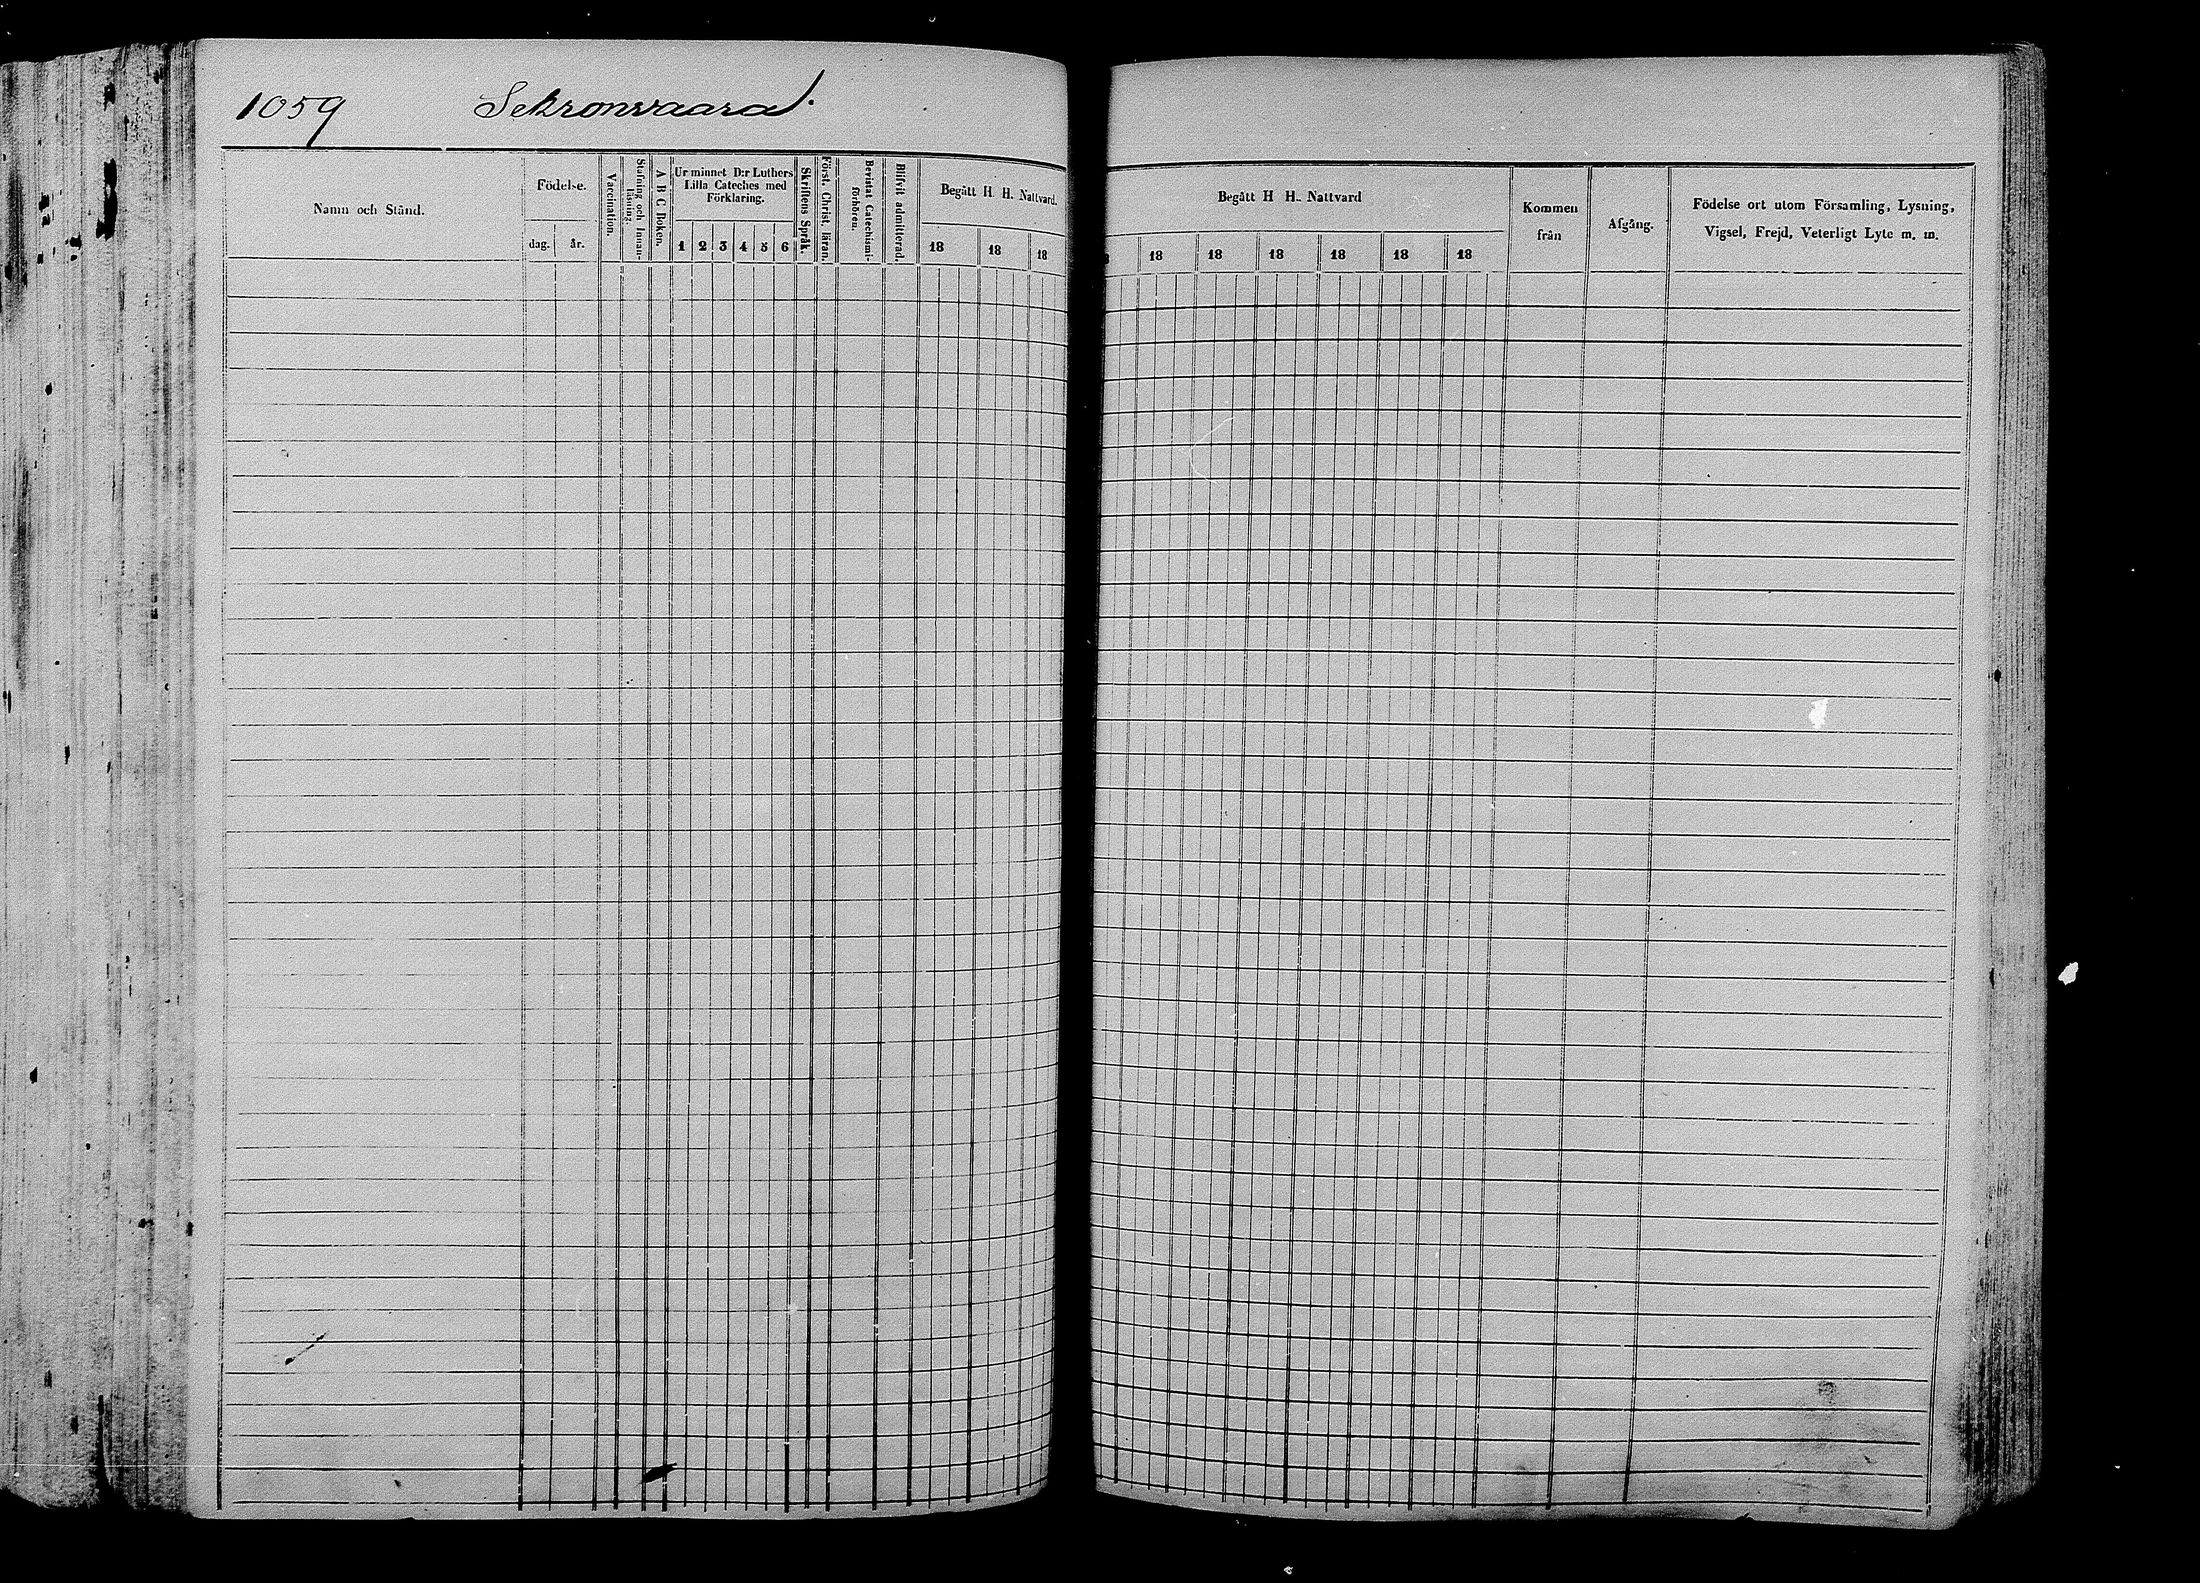 1059 Sekronvaara.
Namn och Stånd.
Födelse.
dag. år.
Vaccination.
Stafning och Innan-
läsning.
A B C Boken.
Ur minnet D:r Luthers
Lilla Cateches med
Förklaring.
1 2 3 4 5 6
Skriftens Språk.
Först. Christ. läran.
Bevistat Catechismi-
förhören.
Blifvit admitterad.
Begått H H. Nattvard.
18 18 18
Begått H H. Nattvard
18 18 18 18 18 18
Kommen
från
Afgång.
Födelse ort utom Församling, Lysning,
Vigsel, Frejd, Veterligt Lyte m. m.